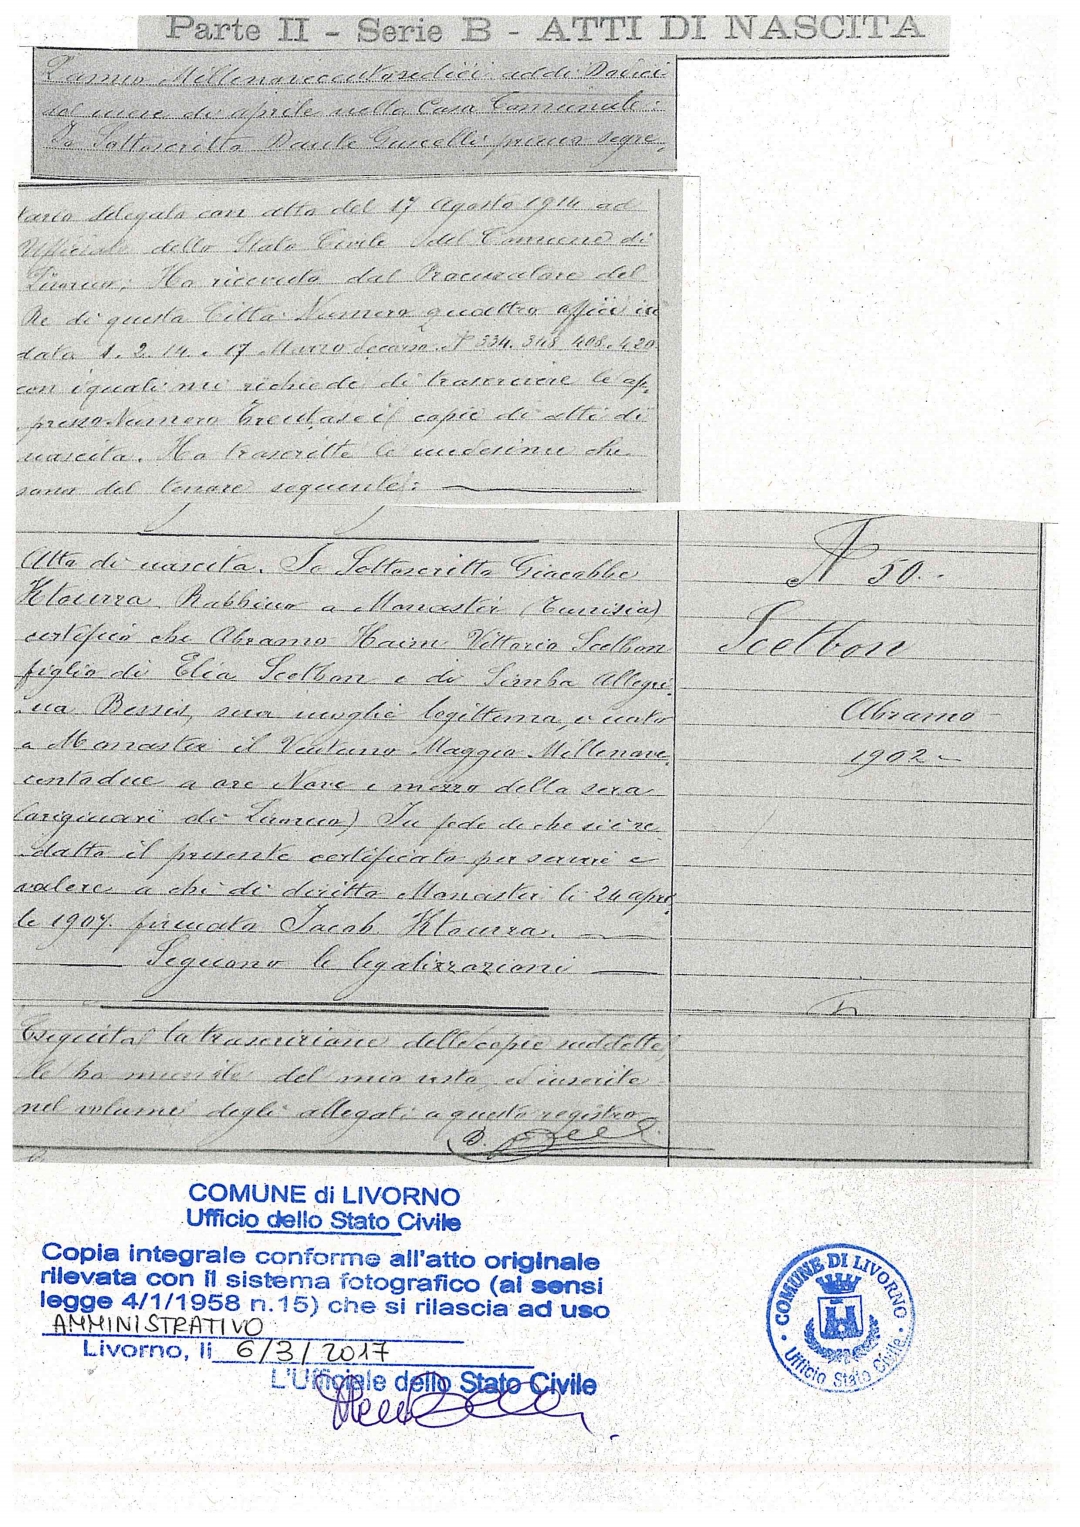 Parte II - Serie B - ATTI DI NASCITA
L'anno Millenovecentosedici addi Dodici
del mese di aprile nella Casa Comunale:
Io Sottoscritto Dante Guscelli primo segre,
tario delegato con atto del 17 Agosto 1914 ad
Ufficiale dello Stato Civile del Comune di
Livorno; Ho ricevuto dal Procuratore del
Re di questa Città Numero quattro uffici in
data 1. 2. 14. e 17 Marzo decorso N° 334. 348 408. 420
con i quali mi richiede di trascrivere le ap,
presso Numero Trentasei copie di atti di
nascita. Ho trascritte le medesime che
sono del tenore seguente:
Atto di nascita. Io Sottoscritto Giacobbe
Ktourza Rabbino a Monastir (Tunisia)
certifico che Abramo Haim Vittorio Scetbon
figlio di Elia Scetbon e di Simha Allegri,
na Bessis, sua moglie legittima, è nato
a Monastir il Ventuno Maggio Millenove,
centodue a ore Nove e mezzo della sera
(originari di Livorno) In fede di che si è re,
datto il presente certificato per servire e
valere a chi di diritto Monastir li 24 apri,
le 1907. firmato Jacob Ktourza.
Seguono le legalizzazioni
N 50.
Scetbon
Abramo
1902
Eseguita la trascrizione delle copie suddette,
le ho munite del mio visto, ed inserite
nel volume degli allegati a questo registro
D.
COMUNE di LIVORNO
Ufficio dello Stato Civile
Copia integrale conforme all'atto originale
rilevata con il sistema fotografico (ai sensi
legge 4/1/1958 n.15) che si rilascia ad uso
AMMINISTRATIVO
Livorno, li 6/3/2017
L'Ufficiale dello Stato Civile
COMUNE DI LIVORNO
Ufficio Stato Civile